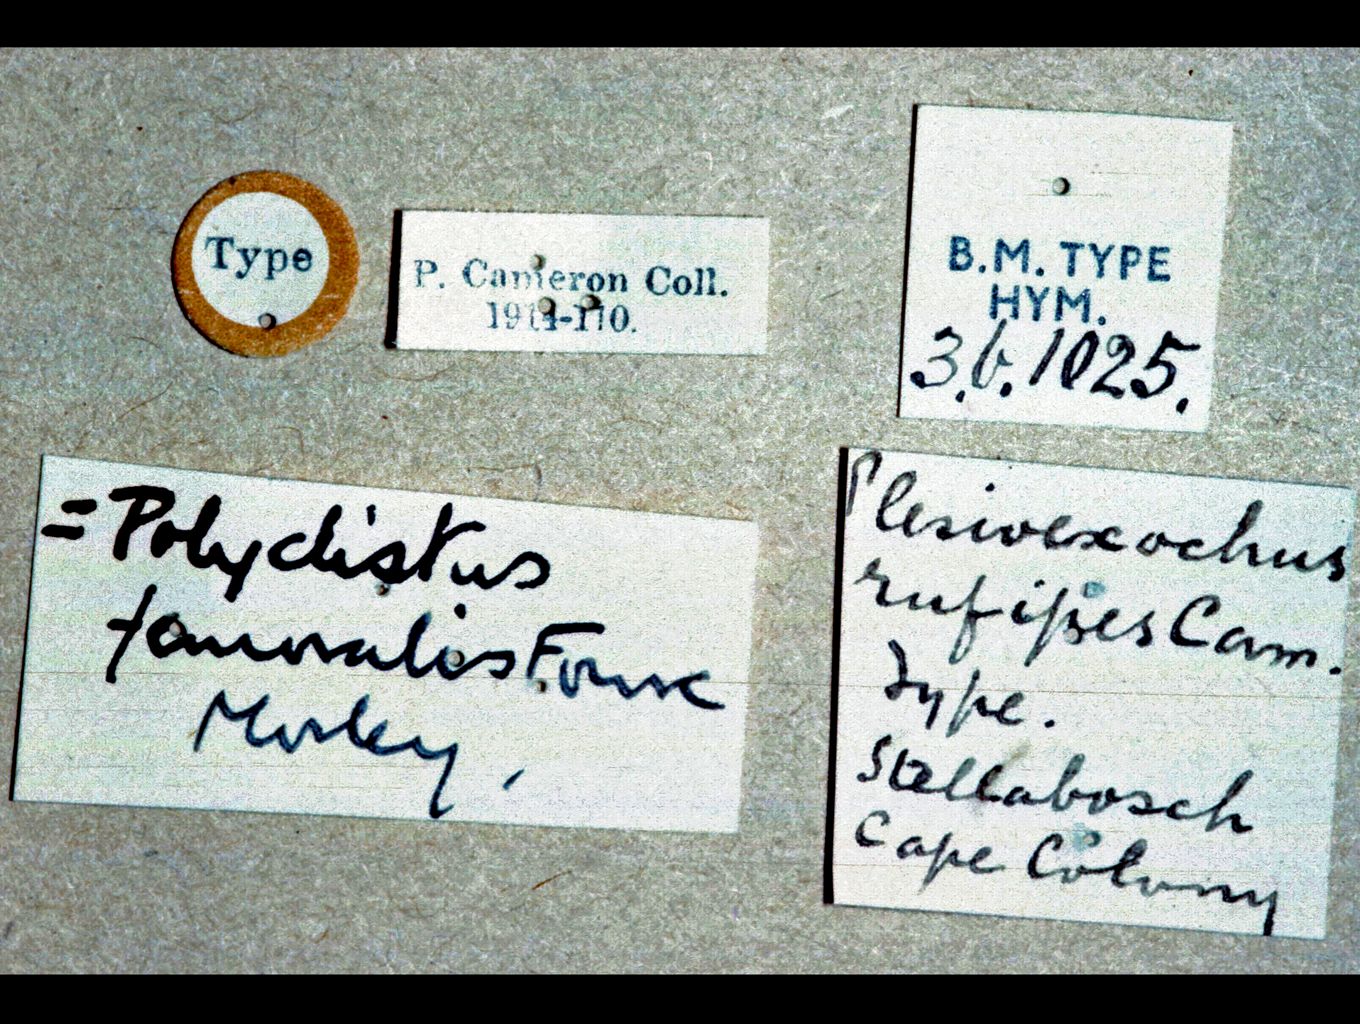 Type
P. Cameron Coll.
1914-110.
B.M. TYPE
HYM.
3.b.1025.
= Polyclistus
femoralis Fourc
Morley,
Plesioexochus
rufipes Cam.
Type.
Stellabosch
Cape Colony